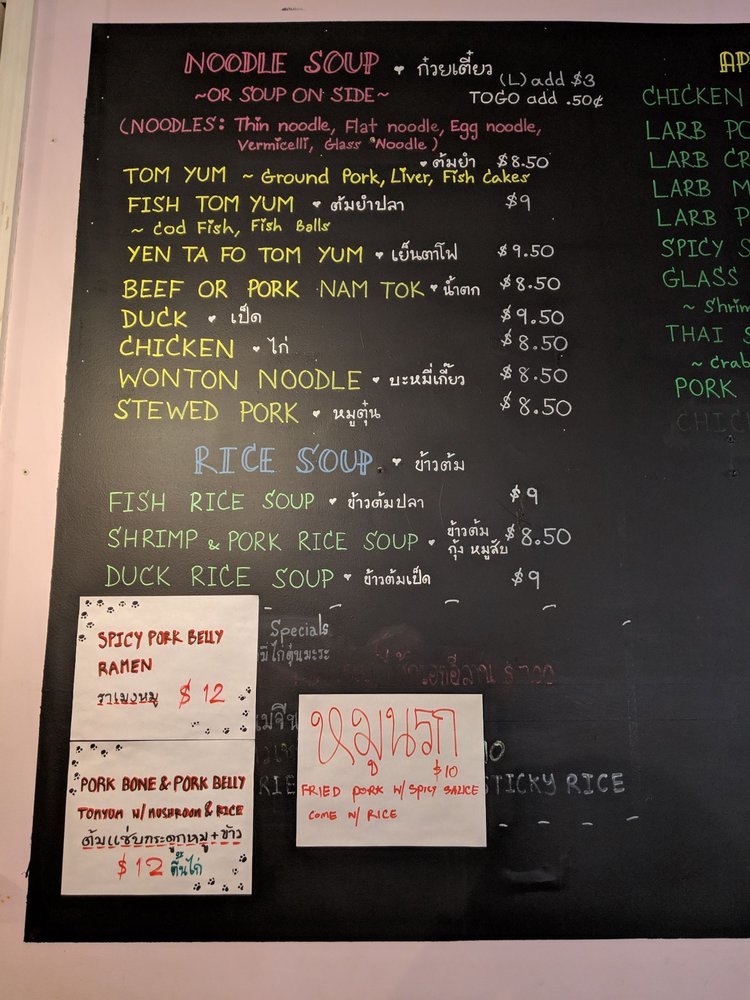 NOODLE SOUP ♥ ก๋วยเตี๋ยว (L) add $3
~OR SOUP ON SIDE~ TOGO add .50¢
(NOODLES: Thin noodle, Flat noodle, Egg noodle,
Vermicelli, Glass Noodle)
♥ ต้มยำ $8.50
TOM YUM ~ Ground Pork, Liver, Fish Cakes
FISH TOM YUM ♥ ต้มยำปลา $9
~ Cod Fish, Fish Balls
YEN TA FO TOM YUM ♥ เย็นตาโฟ $9.50
BEEF OR PORK NAM TOK ♥ น้ำตก $8.50
DUCK ♥ เป็ด $9.50
CHICKEN ♥ ไก่ $8.50
WONTON NOODLE ♥ บะหมี่เกี๊ยว $8.50
STEWED PORK ♥ หมูตุ๋น $8.50
RICE SOUP ♥ ข้าวต้ม
FISH RICE SOUP ♥ ข้าวต้มปลา $9
SHRIMP & PORK RICE SOUP ♥ ข้าวต้ม $8.50
กุ้ง หมูสับ
DUCK RICE SOUP ♥ ข้าวต้มเป็ด $9
Specials
SPICY PORK BELLY
RAMEN
ราเมงหมู $12
PORK BONE & PORK BELLY
TOMYUM W/ MUSHROOM & RICE
ต้มแซ่บกระดูกหมู+ข้าว
$12
หมูนรก
$10
FRIED PORK W/ SPICY SAUCE
COME W/ RICE
STICKY RICE
CHICKEN
LARB
LARB
LARB
LARB
SPICY
GLASS
THAI
PORK